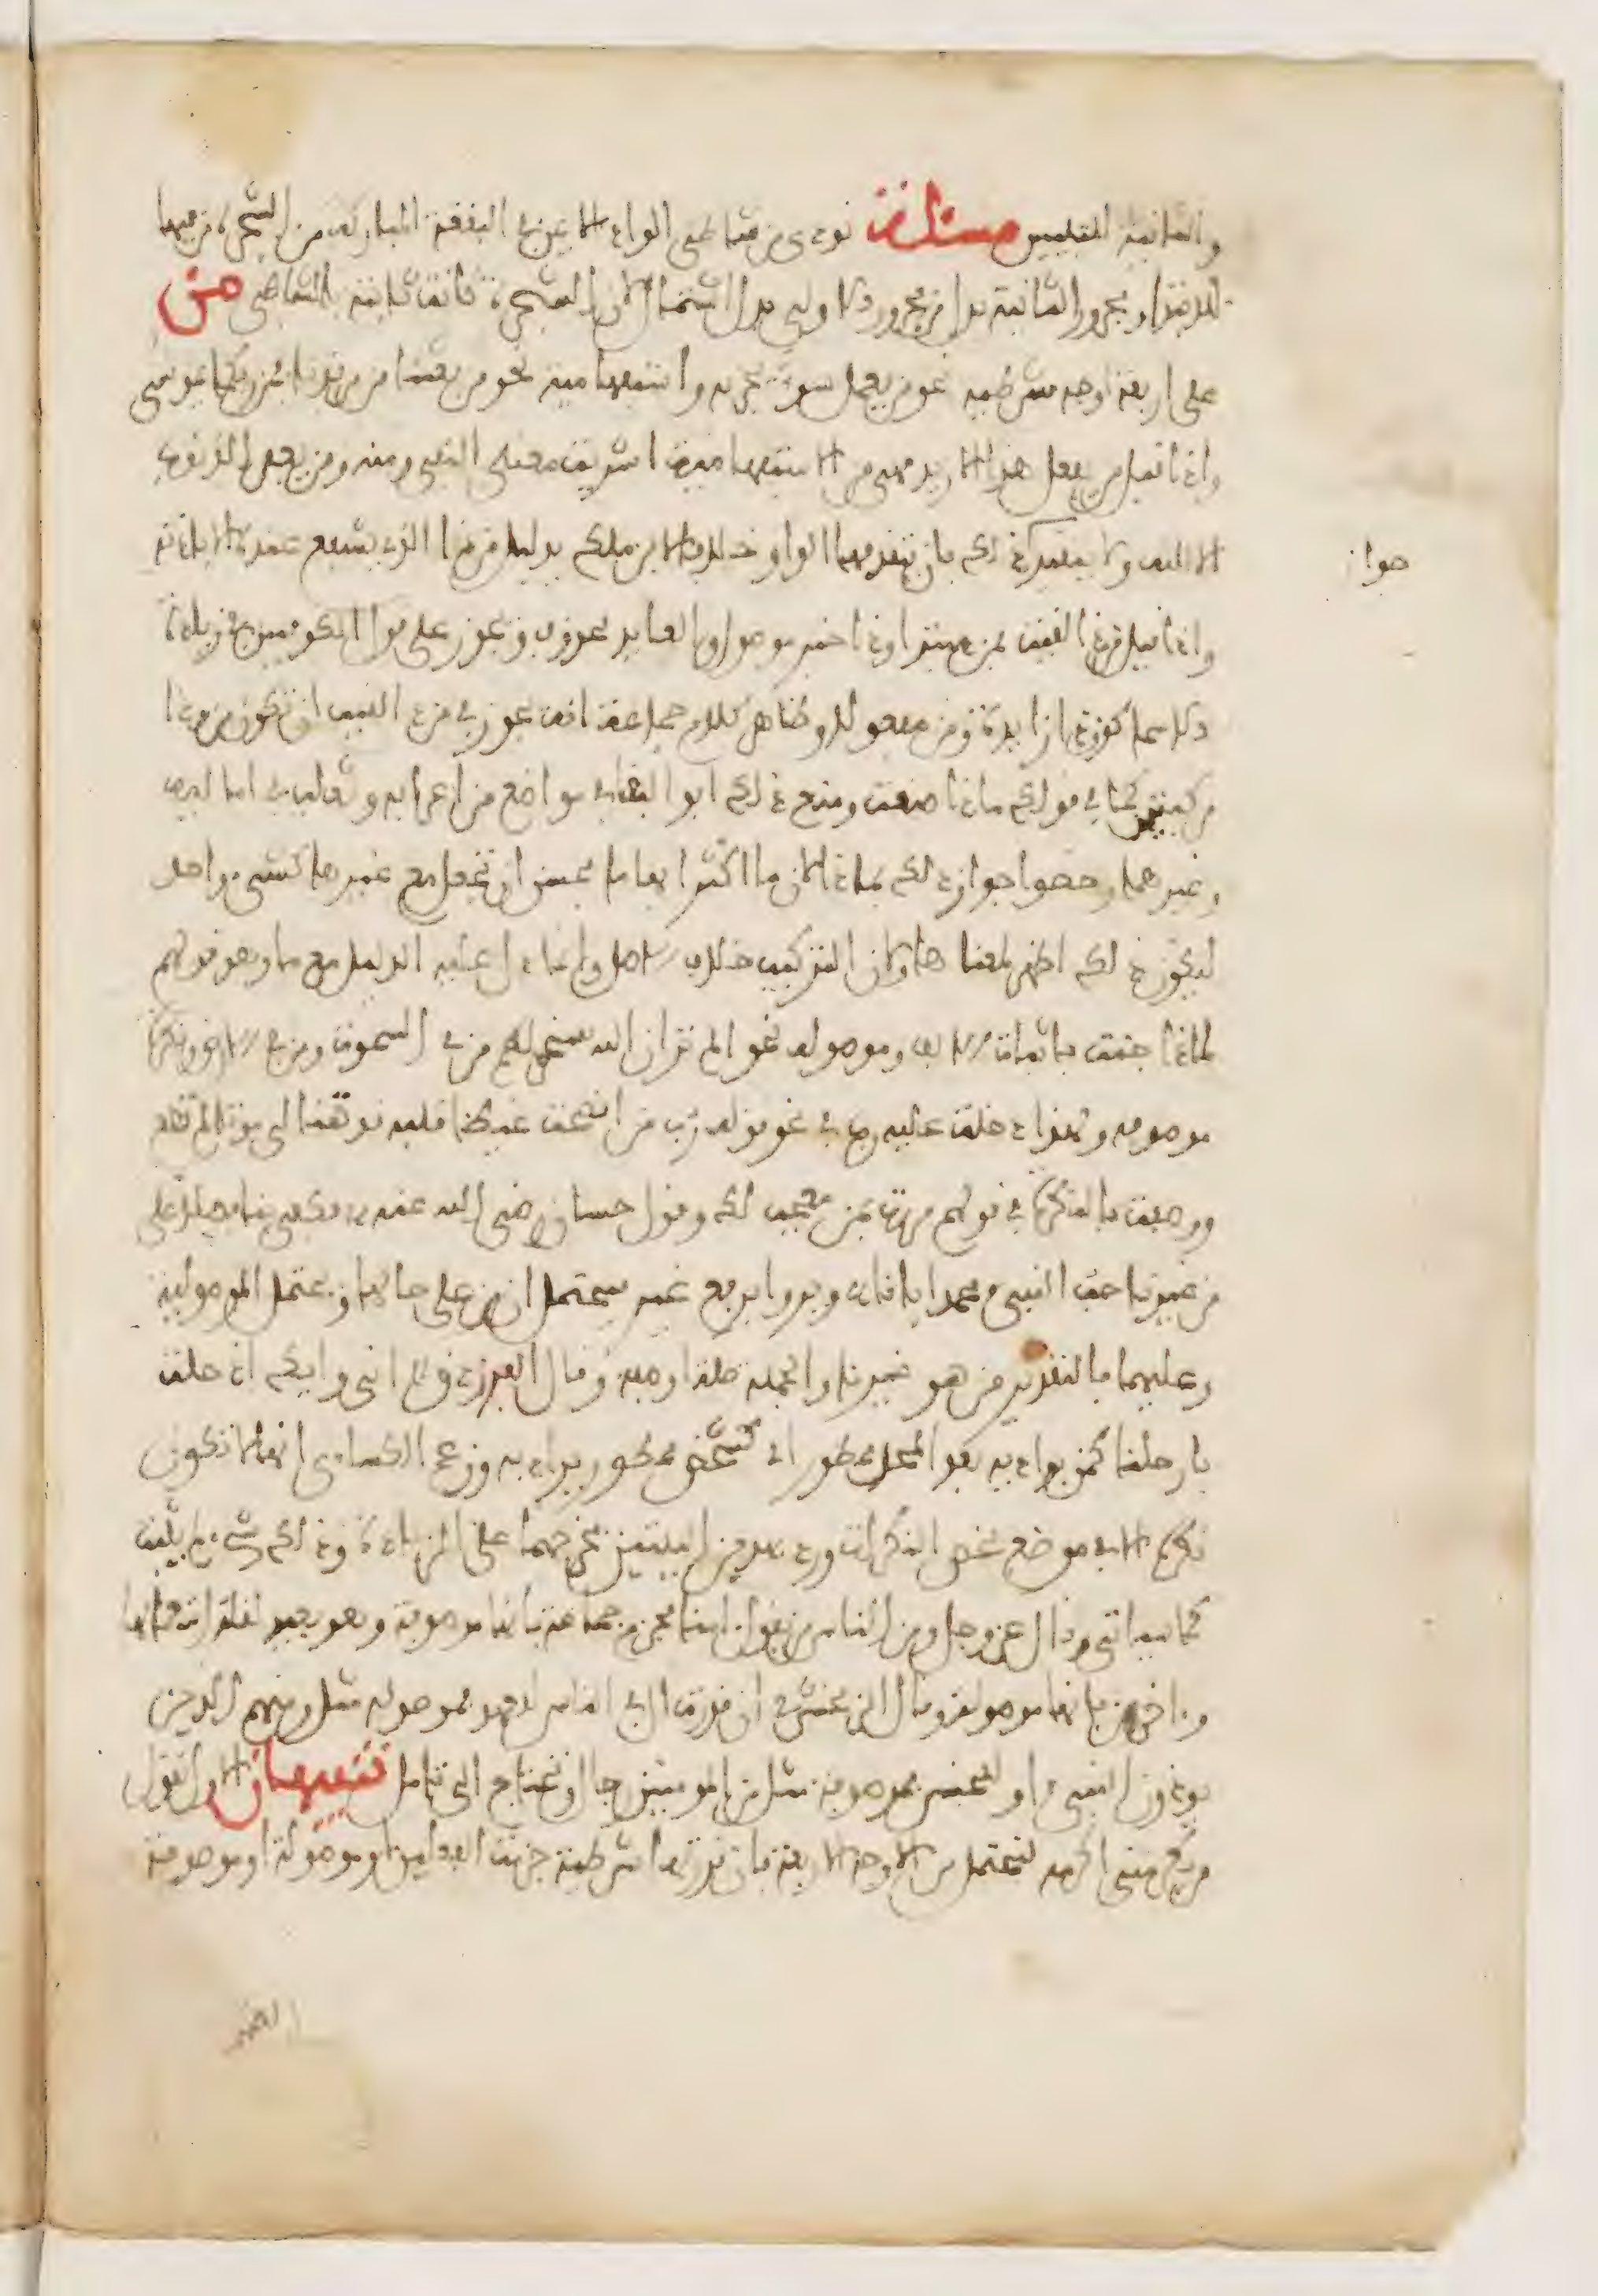 والثانية للتبيين مسئلة نودي من شاطئ الواد الايمن في البقعة المباركة من الشجرة من فيهما
للابتداء ومجرور الثانية بدل من مجرور الاولى بدل اشتمال لان الشجرة كانت ثابتة بالشاطئ من
على اربعة اوجه شرطية نحو من يعمل سوءا يجز به واستفهامية نحو من بعثنا من مرقدنا فمن ربكما يموسى
واذا قيل من يفعل هذا الا زيد فهي من الاستفهامية اشربت معنى النفي ومنه ومن يغفر الذنوب
الا الله ولا يتقيد ذلك بان يتقدمها الواو خلافا لابن ملك بدليل من ذا الذي يشفع عنده الا باذنه
واذا قيل من ذا لقيت فمن مبتدا وذا خبر موصول والعايد محذوف ويجوز على قول الكوفيين في زيادة
الاسماء كون ذا زايدة ومن مفعولا وظاهر كلام جماعة انه يجوز في من ذا لقيت ان تكون من وذا
مركبتين كما في قولك ماذا صنعت ومنع ذلك ابو البقاء في مواضع من اعرابه وثعلب في اماليه
وغيرهما وخصوا جواز ذلك بماذا لان ما اكثر ابهاما فحسن ان تجعل مع غيرها كشيء واحد
ليكون ذلك اظهر لمعناها ولان التركيب خلاف الاصل وانما دل عليه الدليل مع ما وهو قولهم
لماذا جئت باثبات الالف وموصولة نحو الم تر ان الله يسجد له من في السموت ومن في الارض ونكرة
موصوفة ولهذا دخلت عليها رب في نحو قوله رب من انضجت غيظا قلبه قد تمنى لي موتا لم يطع
ووصفت بالنكرة في قولهم مررت بمن معجب لك وقول حسان رضي الله عنه فكفى بنا فضلا على
من غيرنا حب النبي محمد ايانا ويروى برفع غير فيحتمل ان من على حالها ويحتمل الموصولية
وعليهما فالتقدير من هو غيرنا والجملة صلة او صفة وقال الفرزدق اني واياك اذ حلت
بارحلنا كمن بواديه بعد المحل ممطور اي كشخص ممطور بواديه وزعم الكساءي انها لا تكون
نكرة الا في موضع يخص النكرات ورد بهذين البيتين فخرجهما على الزيادة وذلك شيء لم يثبت
كما سياتي وقال عز وجل ومن الناس من يقول امنا فجزم جماعة بانها موصوفة وهو بعيد لقلة استعمالها
واخرون بانها موصولة وقال الزمخشري ان قدرت ال في الناس للعهد فموصولة مثل ومنهم الذين
يوذون النبيء او للجنس فموصوفة مثل من المومنين رجال ويحتاج الى تامل تنبيهان الاول تقول
من يكرمني اكرمه فتحتمل من الاوجه الاربعة فان قدرتها شرطية جزمت الفعلين او موصولة او موصوفة
جواز